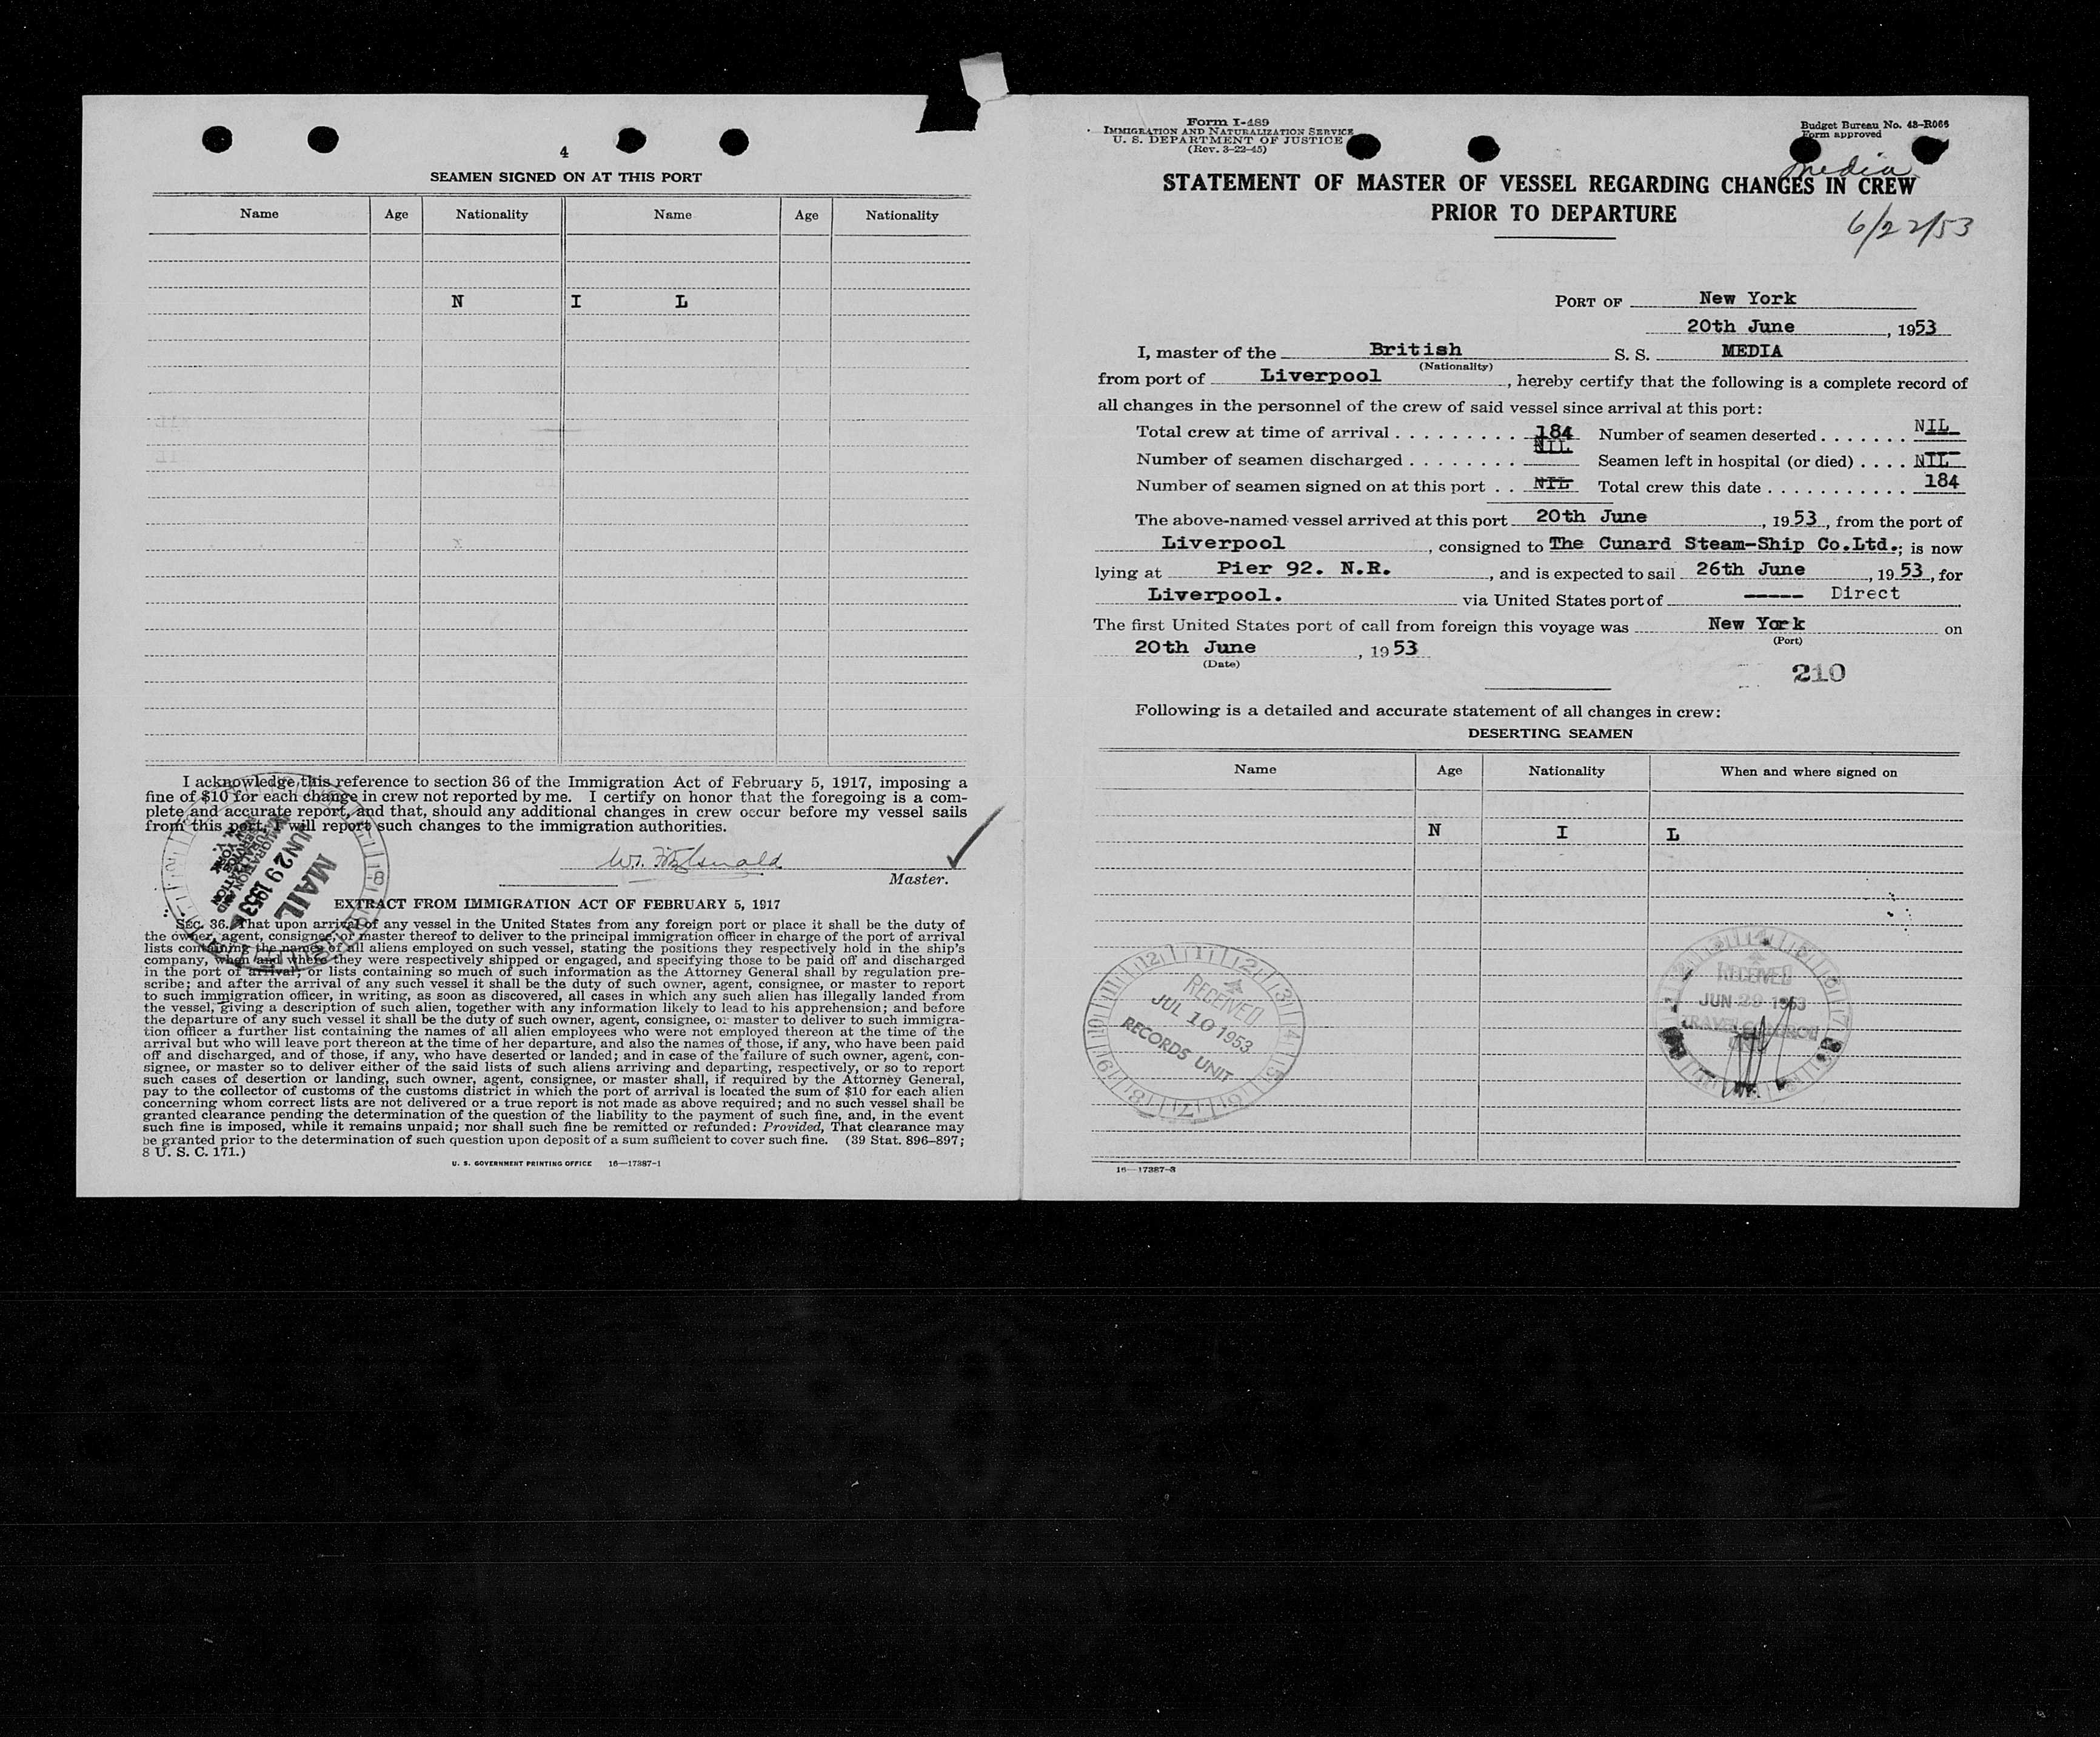 4
SEAMEN SIGNED ON AT THIS PORT
Name Age Nationality Name Age Nationality
N I L
I acknowledge this reference to section 36 of the Immigration Act of February 5, 1917, imposing a
fine of $10 for each change in crew not reported by me. I certify on honor that the foregoing is a com-
plete and accurate report, and that, should any additional changes in crew occur before my vessel sails
from this port, I will report such changes to the immigration authorities.
Master.
MAIL
JUN 29 1953
EXTRACT FROM IMMIGRATION ACT OF FEBRUARY 5, 1917
SEC. 36. That upon arrival of any vessel in the United States from any foreign port or place it shall be the duty of
the owner, agent, consignee, or master thereof to deliver to the principal immigration officer in charge of the port of arrival
lists containing the names of all aliens employed on such vessel, stating the positions they respectively hold in the ship's
company, when and where they were respectively shipped or engaged, and specifying those to be paid off and discharged
in the port of arrival; or lists containing so much of such information as the Attorney General shall by regulation pre-
scribe; and after the arrival of any such vessel it shall be the duty of such owner, agent, consignee, or master to report
to such immigration officer, in writing, as soon as discovered, all cases in which any such alien has illegally landed from
the vessel, giving a description of such alien, together with any information likely to lead to his apprehension; and before
the departure of any such vessel it shall be the duty of such owner, agent, consignee, or master to deliver to such immigra-
tion officer a further list containing the names of all alien employees who were not employed thereon at the time of the
arrival but who will leave port thereon at the time of her departure, and also the names of those, if any, who have been paid
off and discharged, and of those, if any, who have deserted or landed; and in case of the failure of such owner, agent, con-
signee, or master so to deliver either of the said lists of such aliens arriving and departing, respectively, or so to report
such cases of desertion or landing, such owner, agent, consignee, or master shall, if required by the Attorney General,
pay to the collector of customs of the customs district in which the port of arrival is located the sum of $10 for each alien
concerning whom correct lists are not delivered or a true report is not made as above required; and no such vessel shall be
granted clearance pending the determination of the question of the liability to the payment of such fine, and, in the event
such fine is imposed, while it remains unpaid; nor shall such fine be remitted or refunded: Provided, That clearance may
be granted prior to the determination of such question upon deposit of a sum sufficient to cover such fine. (39 Stat. 896-897;
8 U. S. C. 171.)
U. S. GOVERNMENT PRINTING OFFICE 16—17387-1
Form I-489
IMMIGRATION AND NATURALIZATION SERVICE
U. S. DEPARTMENT OF JUSTICE
(Rev. 3-22-45)
Budget Bureau No. 43-R066
Form approved
Media
STATEMENT OF MASTER OF VESSEL REGARDING CHANGES IN CREW
PRIOR TO DEPARTURE
6/22/53
PORT OF New York
20th June, 1953
I, master of the British S. S. MEDIA
(Nationality)
from port of Liverpool, hereby certify that the following is a complete record of
all changes in the personnel of the crew of said vessel since arrival at this port:
Total crew at time of arrival . . . . . . . . . 184 Number of seamen deserted . . . . . . . NIL
Number of seamen discharged . . . . . . . . NIL Seamen left in hospital (or died) . . . . NIL
Number of seamen signed on at this port . . NIL Total crew this date . . . . . . . . . . . 184
The above-named vessel arrived at this port 20th June, 1953, from the port of
Liverpool, consigned to The Cunard Steam-Ship Co.Ltd.; is now
lying at Pier 92. N.R., and is expected to sail 26th June, 1953, for
Liverpool. via United States port of ----- Direct
The first United States port of call from foreign this voyage was New York on
(Port)
20th June, 1953
(Date)
210
Following is a detailed and accurate statement of all changes in crew:
DESERTING SEAMEN
Name Age Nationality When and where signed on
N I L
RECEIVED
JUL 10 1953
RECORDS UNIT
RECEIVED
JUN 29 1953
16—17387-3